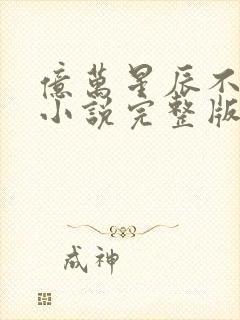 億萬星辰不
小說完整版
成神